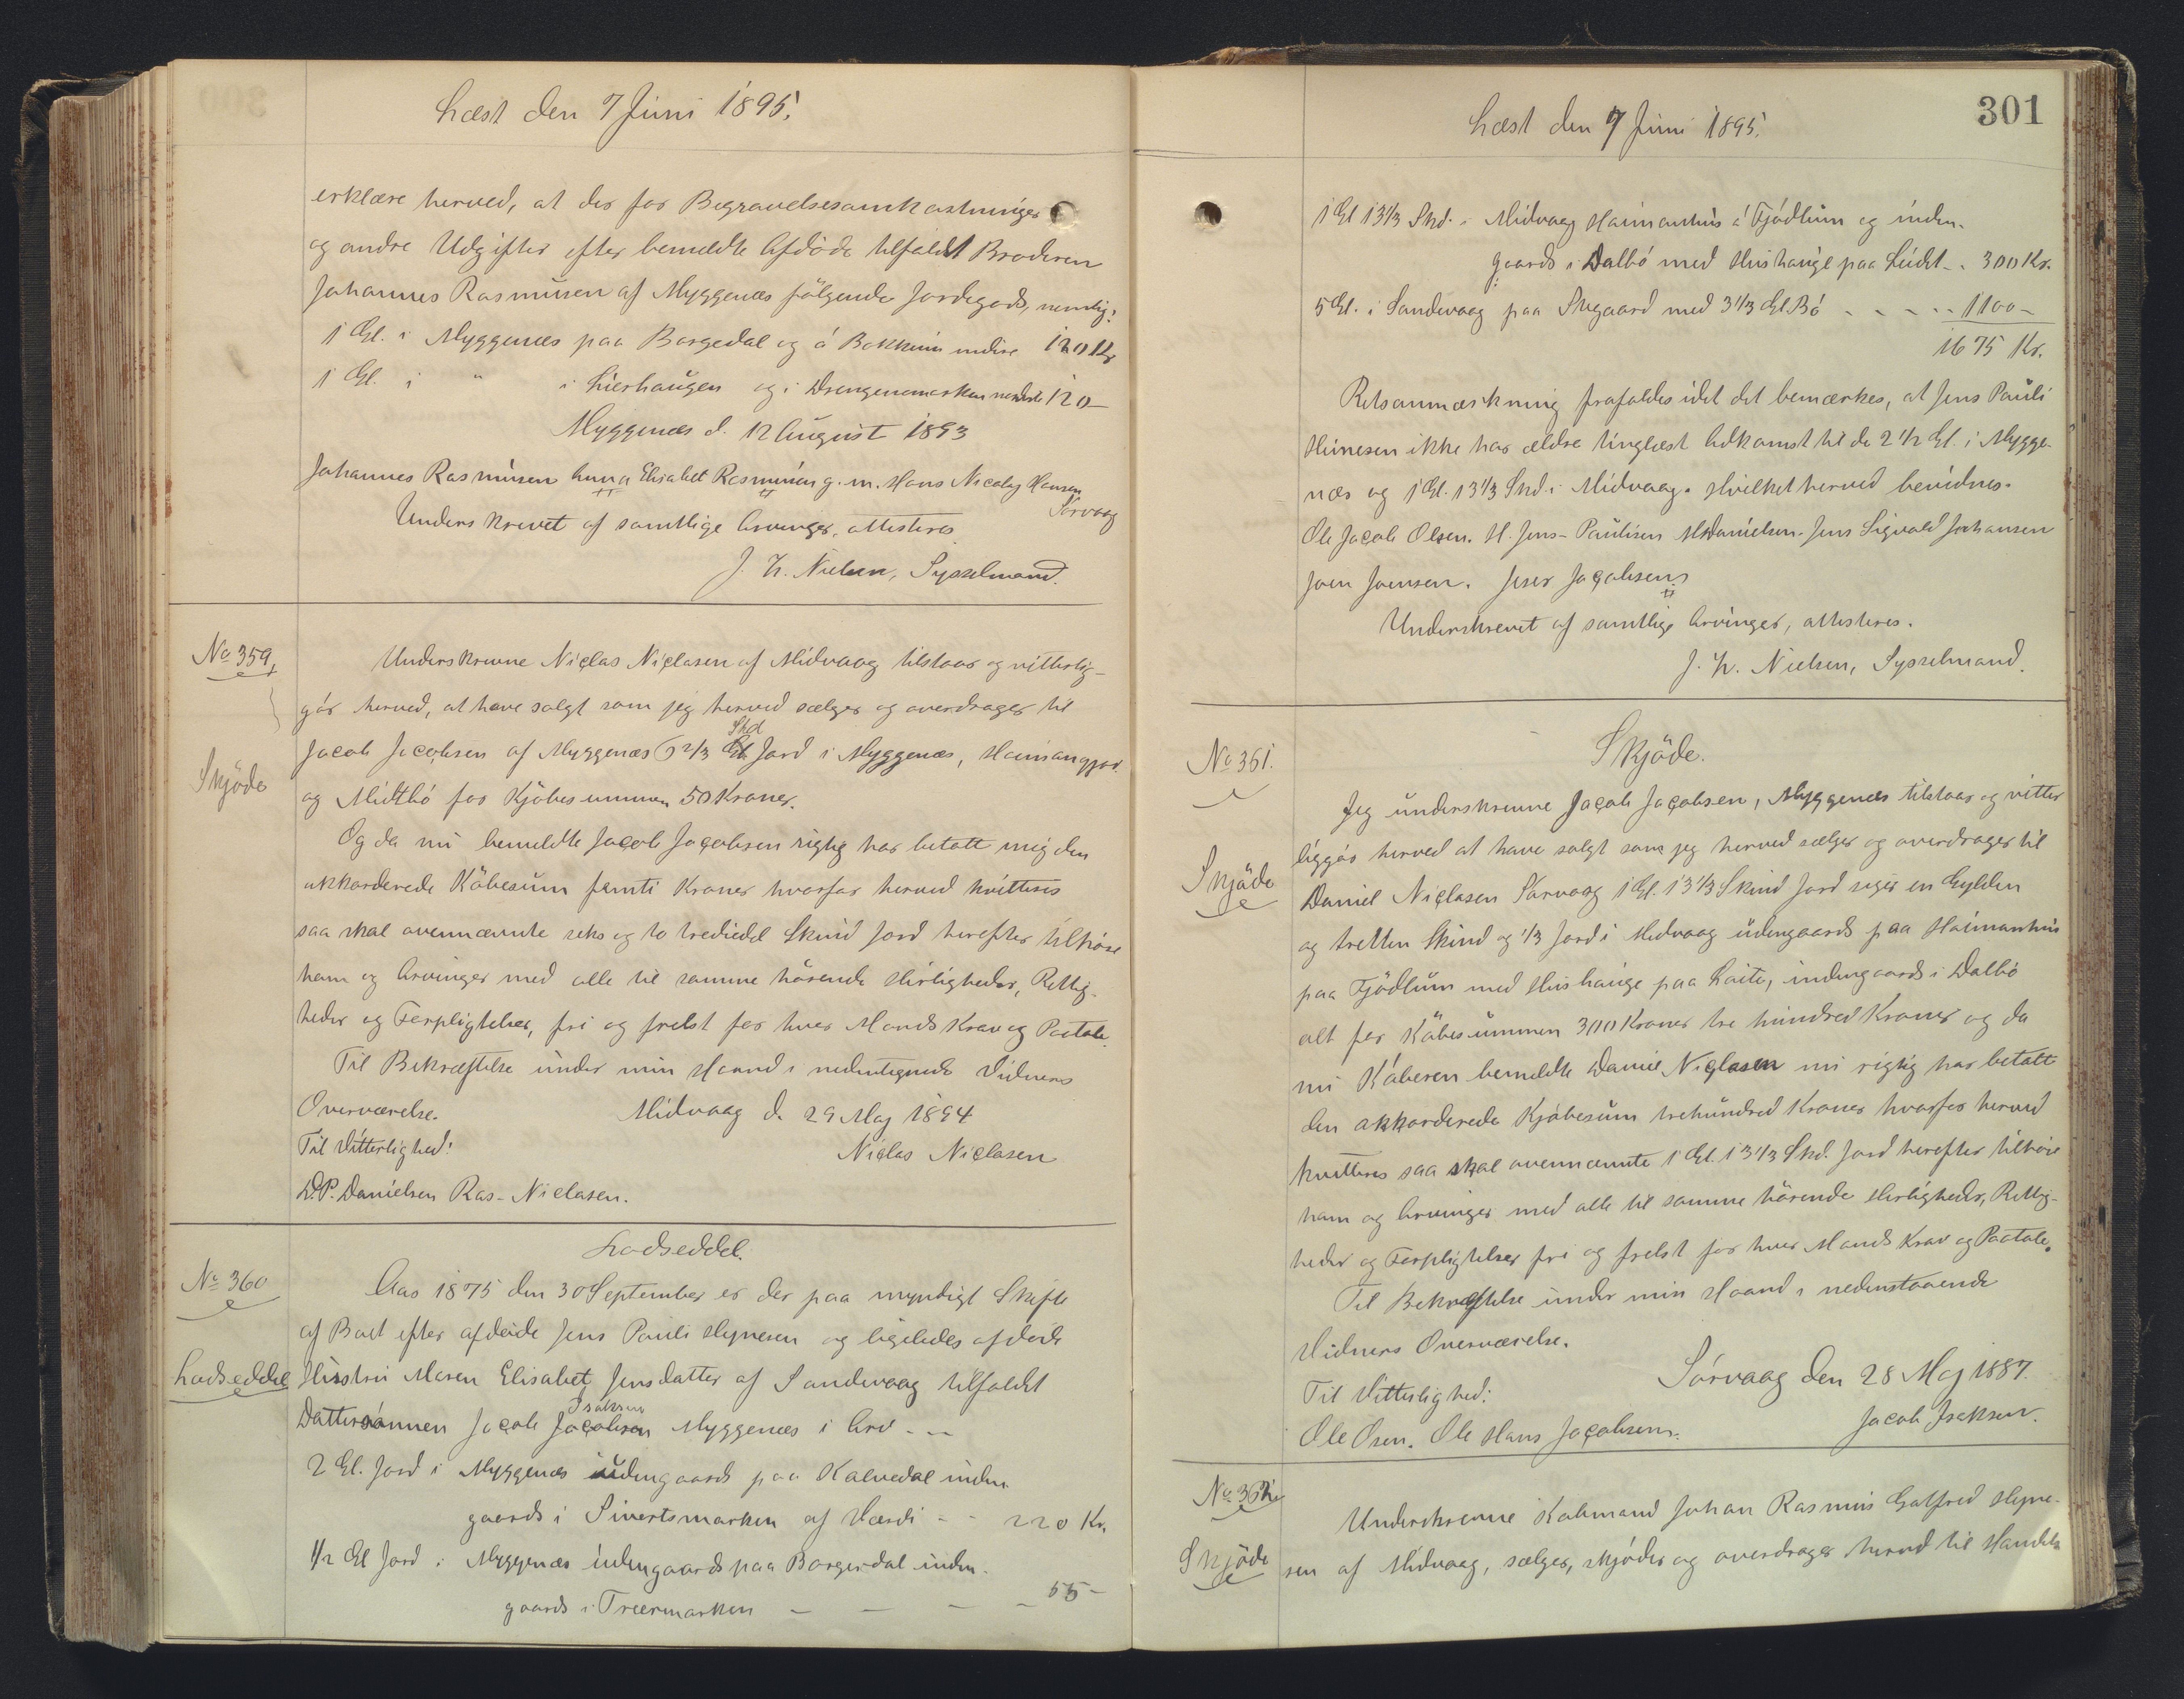 Læst den 7 Juni 1895.
erklære herved, at der for Begravelsesomkostninger
og andre Udgifter efter bemeldte Afdöde tilfaldt Broderen
Johannes Rasmusen af Myggenæs fölgende Jordegods, nemlig:
1 Gl. i Myggenæs paa Borgedal og á Bakkun indre 120 Kr
1 Gl. i " i Lierhaugen og i Drengenemarken nederste 120 –
Myggenæs d. 12 August 1893
Johannes Rasmusen Anna Elisabet Rasmusen g. m. Hans Nicolaj Hansen
Sorvaag
Underskrevet af samtlige Arvinger, attesteres
J. H. Nielsen, Sysselmand.
No 359.
Skjöde
Underskrevne Niclas Niclasen af Midvaag tilstaar og vitterlig-
gör herved, at have solgt som jeg herved sælger og overdrager til
Skd
Jacob Jacobsen af Myggenæs 6 2/3 Gl Jord i Myggenæs, Heimangjar
og Midtbö for Kjöbesummen 50 Kroner.
Og da nu bemeldte Jacob Jacobsen rigtig har betalt mig den
akkorderede Köbesum femti Kroner hvorfor herved kvitteres
saa skal ovennævnte seks og to trediedel Skind Jord herefter tilhöre
ham og Arvinger med alle til samme hörende Herligheder, Rettig-
heder og Forpligtelser, fri og frelst for hver Mands Krav og Paatale.
Til Bekræftelse under min Haand i nedentegnede Vidners
Overværelse.
Midvaag d. 29 Maj 1894
Til Vitterlighed:
Niclas Niclasen
D.P. Danielsen Ras- Niclasen.
No 360
Lodseddel
Lodseddel.
Aar 1875 den 30 September er der paa myndigt Skifte
af Boet efter afdöde Jens Pauli Hynesen og ligeledes afdöde
Hustru Maren Elisabet Jensdatter af Sandevaag tilfaldet
Isaksen
Dattersönnen Jacob Jacobsen Myggenæs i Arv - -
2 Gl. Jord i Myggenæs udengaards paa Kalvedal inden
gaards i Sivertsmarken af Værdi - - 220 Kr.
1/2 Gl Jord i Myggenæs udengaards paa Borgerdal inden-
gaards i Treermarken - - - - 55 –
301
Læst den 7 Juni 1895.
1 Gl 13 1/3 Skd. i Midvaag Heimanhus á Fjödlum og inden-
gaards i Dalbö med Hushauge paa Leidet - . 300 Kr.
5 Gl. i Sandevaag paa Ingaard med 3 1/3 Gl. Bö - - - - - 1100 –
1675 Kr.
Retsanmærkning frafaldes idet det bemærkes, at Jens Pauli
Heinesen ikke har ældre tinglæst Adkomst til de 2 1/2 Gl. i Mygge-
næs og 1 Gl. 13 1/3 Skd. i Midvaag. Hvilket herved bevidnes.
Ole Jacob Olsen. H. Jens- Paulisen MDanielsen. Jens Sigvald Johansen
Joen Joensen. Jeser Jacobsen
Underskrevet af samtlige Arvinger, attesteres.
J. H. Nielsen, Sysselmand.
No 361.
Skjöde
Skjöde.
Jeg underskrevne Jacob Jacobsen, Myggenæs tilstaar og vitter
liggör herved at have solgt som jeg herved sælger og overdrager til
Daniel Niclasen Sörvaag 1 Gl. 13 1/3 Skind Jord siger en Gylden
og tretten Skind og 1/3 Jord i Midvaag udengaards paa Heimanhus
paa Fjödlum med Hushauge paa Laite, indengaards i Dalbö
alt for Köbesummen 300 Kroner tre hundred Kroner og da
nu Köberen bemeldte Daniel Niclasen nu rigtig har betalt
den akkorderede Kjöbesum trehundred Kroner hvorfor herved
kvitteres saa skal ovennævnte 1 Gl. 13 1/3 Skd. Jord herefter tilhöre
ham og Arvinger med alle til samme hörende Herligheder, Rettig-
heder og Forpligtelser fri og frelst for hver Mands Krav og Paatale.
Til Bekræftelse under min Haand i nedenstaaende
Vidners Overværelse.
Sörvaag den 28 Maj 1887.
Til Vitterlighed:
Jacob Isaksen.
Ole Osen. Ole Hans Jacobsen.
No 362
Skjöde
Underskrevne Købmand Johan Rasmus Gotfred Hyne-
sen af Midvaag, sælger, skjöder og overdrager herved til Handels